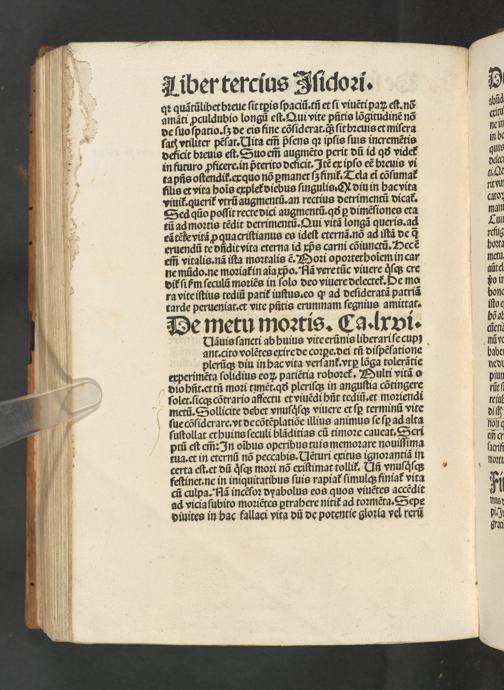 Liber tercius Isidori.
qr quātūlibet breue sit tp̄is spaciū. tn̄ et si viuēti parū est. nō
amāti ꝓculdubio longū est. Qui vite pn̄tis lōgitudinē nō
de suo spatio. sꝫ de eis fine cōsiderat. ꝙ̄ sit breuis et misera
satꝭ vtiliter pēsat. Uita em̄ pn̄sens qr ipsis suis incremētis
deficit breuis est. Suo em̄ augmēto perit dū id qd̓ videt̉
in futuro ꝓficere. in p̄terito deficit. Itē ex ipso eē breuis vi
ta pn̄s ostendit̉. ex quo nō ꝑmanet sꝫ finit̉. Tela ei cōsumat̉
filis et vita hoīs explet̉ diebus singulis. Qui diu in hac vita
viuit. querit̉ vtrū augmentū. an rectius detrimentū dicat̉.
Sed quō possit recte dici augmentū. qd̓ ꝑ dimēsiones eta
tū ad mortis tēdit detrimentū. Qui vitā longā queris. ad
eā tēde vitā ꝓ qua cristianus es idest eternā. nō ad istā de q̄
eruendū te dn̄dit vita eterna id xp̄s carni cōiunctū. Hec ē
em̄ vitalis. nā ista mortalis ē. Mori oportet hoīem in car
ne mūdo. ne moriat̉ in aīa xp̄o. Nā vere tūc viuere qͥsqꝫ cre
dit̉ si fͫm seculū moriēs in solo deo viuere delectet̉. De mo
ra vite istius tediū patit̉ iustus. eo qͥ ad desideratā patriā
tarde perueniat. et vite pn̄tis erumnam segnius amittat.
De metu mortis. Ca. lxvi.
Uāuis sancti ab huius vite erūnis liberari se cupi
ant. cito volētes exire de corpe. dei tn̄ dispēsatione
plerūqꝫ diu in hac vita versant̉. vt ꝑ lōga tolerātie
experimēta solidius eorꝫ patiētia roboret̉. Multi vitā o
dio hn̄t. et tn̄ mori timēt. qd̓ plerisqꝫ in angustia cōtingere
solet. sicqꝫ cōtrario affectu et viuēdi hn̄t tediū. et moriendi
metū. Sollicite debet vnusqͥsqꝫ viuere et sp̄ terminū vite
sue cōsiderare. vt de cōtēplatiōe illius animus se sp̄ ad alta
sustollat et huius seculi blāditias cū timore caueat. Scri
ptū est em̄. In oībus operibus tuis memorare nouissima
tua. et in eternū nō peccabis. Uēturi exitus ignorantiā in
certa est. et dū qͥsqꝫ mori nō existimat tollit̉. Un̄ vnusqͥsqꝫ
festinet. ne in iniquitatibus suis rapiat̉ simulqꝫ finiat̉ vita
cū culpa. Nā incēsor dyabolus eos quos viuētes accēdit
ad vicia subito moriētes ꝑtrahere nitit̉ ad tormēta. Sepe
diuites in hac fallaci vita dū de potentie gloria vel rerū